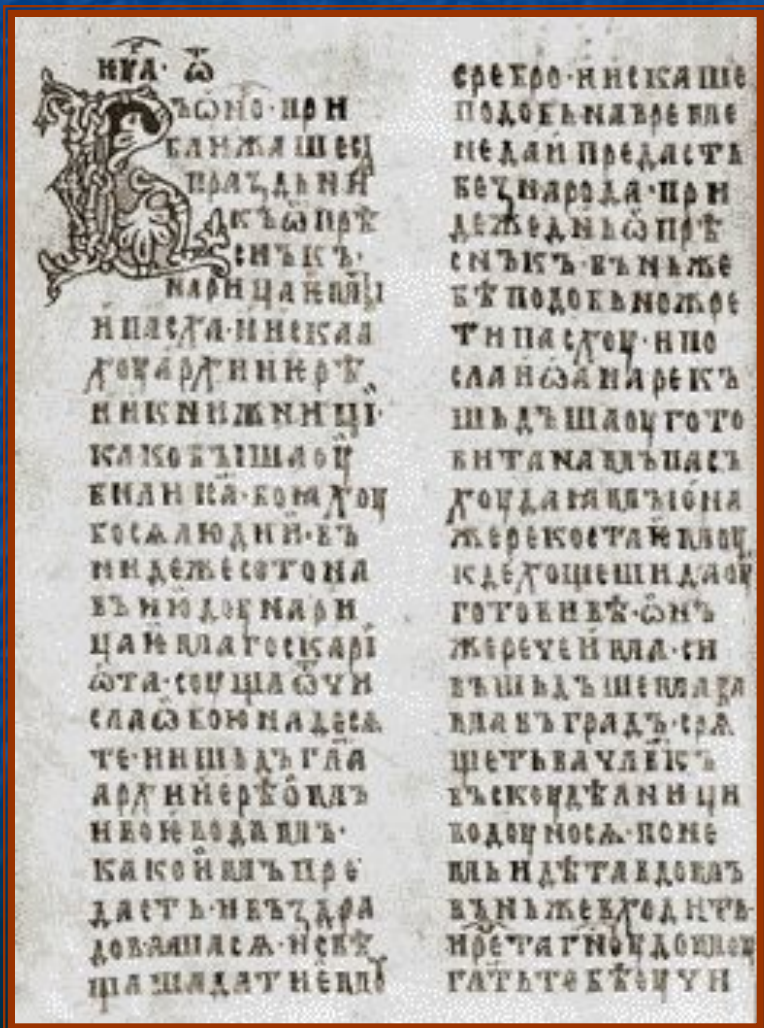 ВЪ ѡно · при
ближашесѧ
праздьни
къ ѡпрѣ
снъкъ ·
нарицаѥмꙑ
и пасха · и искаа
хоу архииерѣ
и и книжници ·
како бꙑша оу
били іс҃а · боꙗхоу
бо сѧ людии · въ
ниде же сотона
въ июдоу нари
цаѥмаго скарі
ѡта · соуща ѿ чи
сла ѡбою на десѧ
те · и шьдъ гл҃а
архииерѣѡмъ
и воѥводамъ ·
како и имъ пре
дасть · и въздра
довашасѧ · и съвѣ
щаша дати ѥмоу
сребро · и искаше
подобьна времене
не да и предасть
без народа · при
де же днь ѡпрѣ
снъкъ · въ ньже
бѣ подобьно жре
ти пасхоу · и по
сла иѡана рекъ
шьдъша оугото
вита намъ пасъ
хоу да ꙗмъ ѡна
же рекоста ѥмоу
кде хощеши да оу
готовивѣ · ѡнъ
же рече има · си
въшьдъшема ва
ма въ градъ · срѧ
щеть ва члвкъ
въ скоудѣлници
водоу носѧ · по не
мь идѣта в домъ
въ ньже въходить ·
и рѣта гноу домоу
гл҃ать тебѣ оучи